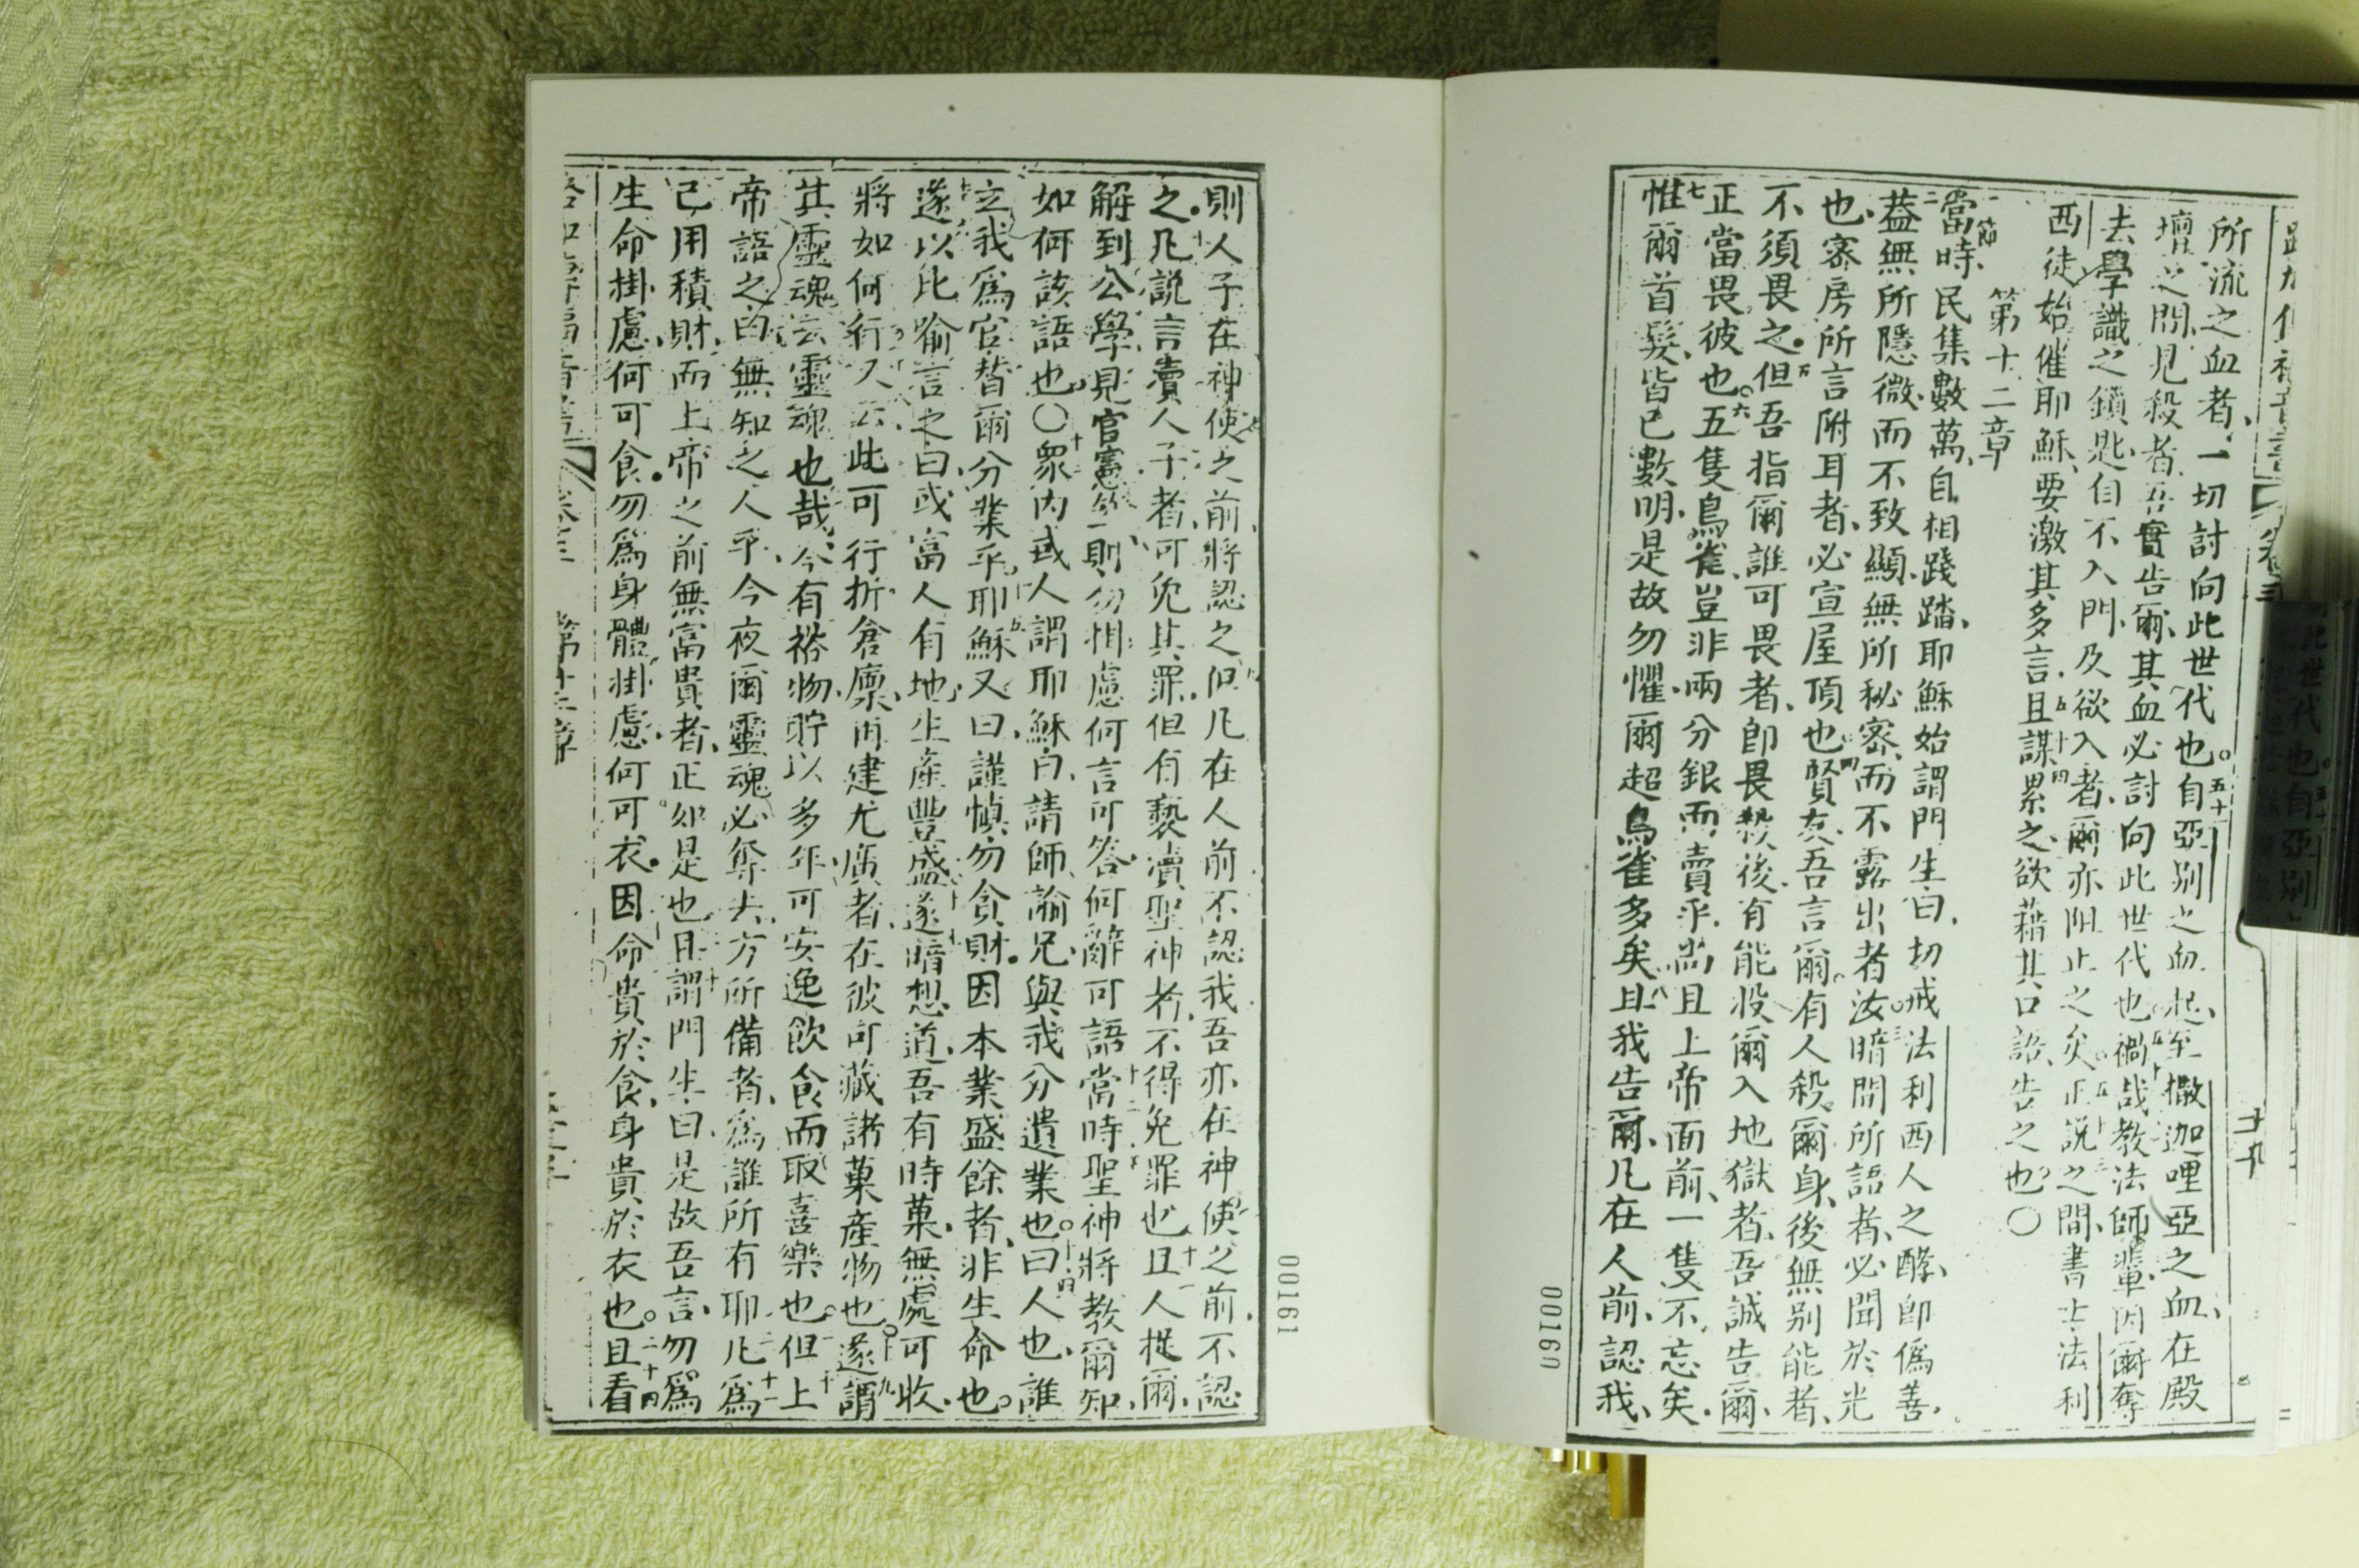 所流之血者、一切討向此世代也。五十一自亞別之血起、至撒迦哩亞之血、在殿
壇之間、見殺者、吾實告爾、其血必討向此世代也。禍哉教法師輩、因爾奪
去學識之鎖匙、自不入門、及欲入者、爾亦阻止之矣。正説之間、書士法利
西徒、始催耶穌、要激其多言、五十四且謀累之、欲藉其口語、告之也〇
第十二章
一節當時、民集數萬、自相踐踏、耶穌始謂門生曰、切戒法利西人之酵、即僞善、
二葢無所隱微、而不致顯、無所秘密、而不露出者。三汝暗間所語者、必聞於光
也、密房所言附耳者、必宣屋頂也。四賢友、吾言爾、有人殺爾身、後無別能者、
不須畏之。五但吾指爾誰可畏者、即畏殺後、有能投爾入地獄者、吾誠告爾、
正當畏彼也。六五隻鳥雀、豈非兩分銀而賣乎、尚且上帝面前、一隻不忘矣、
七惟爾首髮、皆已數明、是故勿懼、爾超鳥雀多矣、八且我告爾、凡在人前、認我、
十九
00160
則人子在神使之前、將認之、但凡在人前不認我、吾亦在神使之前、不認
之。十凡説言賣人子者、可免其罪、但有褻瀆聖神者、不得免罪也、十一且人捉爾、
解到公學、見官憲等、則勿掛慮何言可答、何辭可語、十二當時聖神將教爾知、
如何該語也。〇十三衆內或人謂耶穌曰、請師諭兄、與我分遺業也。十四曰、人也、誰
立我爲官、替爾分業乎、十五耶穌又曰、謹慎勿貪財。因本業盛餘者、非生命也。
十六遂以比喻言之曰、或富人有地、生產豐盛、十七遂暗想道、吾有時菓、無處可收、
將如何行、十八又云、此可行、折倉廪、再建尤廣者、在彼可藏諸菓產物也。十九遂謂
其靈魂云、靈魂也哉、今有裕物、貯以多年、可安逸飲食而取喜樂也。二十但上
帝語之曰、無知之人乎、今夜爾靈魂必奪去、方所備者、爲誰所有耶、二十一凡爲
己用積財、而上帝之前無富貴者、正如是也。二十二且謂門生曰、是故吾言、勿爲
生命掛慮、何可食。勿爲身體掛慮、何可衣。二十三因命貴於食、身貴於衣也。二十四且看
00161